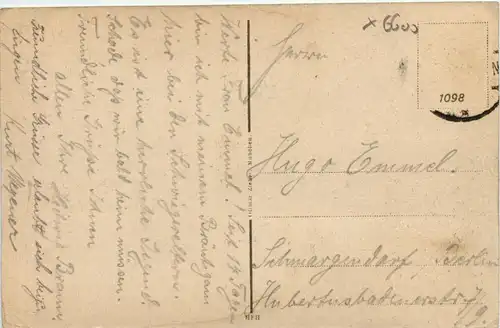 x 6600
Herrn
1098
Hugo Emmel.
Schmargendorf, Berlin
Hubertusbadenerstr.
9.
Werte Frau Emmel! Seit 14 Tagen
bin ich mit meinem Bräutigam
hier bei den Schwiegereltern.
Es ist eine herrliche Gegend.
Schade, daß wir bald heim müssen.
Freundliche Grüße Ihnen
allen Ihre
Freundliche Grüsse erlaubt sich
Kurt Wegener